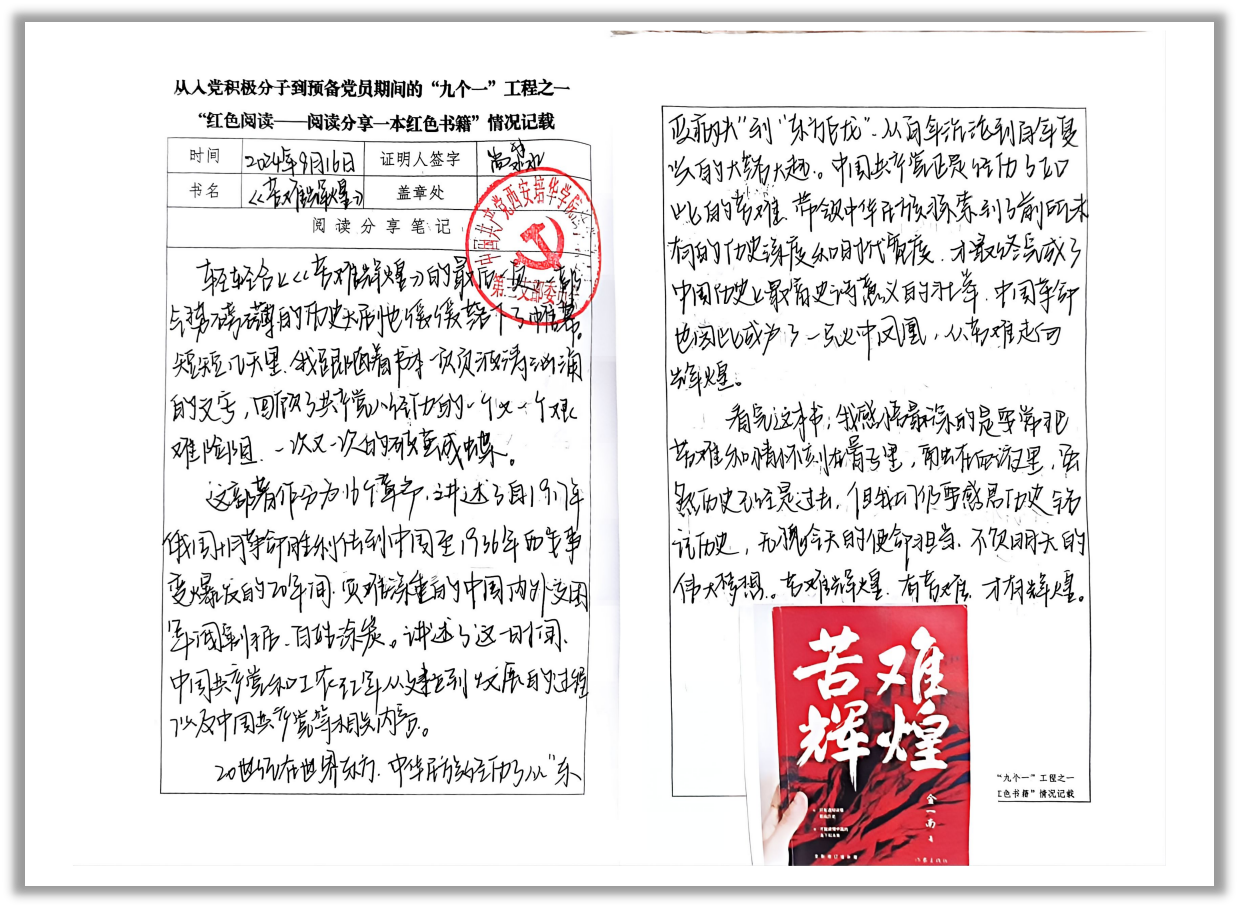 从入党积极分子到预备党员期间的“九个一”工程之一
“红色阅读——阅读分享一本红色书籍”情况记载
时间 2024年9月16日 证明人签字
书名 《苦难辉煌》 盖章处
阅读分享笔记
中国共产党西安培华学院
第三支部委员会
轻轻合上《苦难辉煌》的最后一页,一部
气势磅礴的历史大剧也缓缓落下了帷幕。
短短几天里,我跟随着书本一页页波涛汹涌
的文字,回顾了共产党人经历的一个又一个艰
难险阻,一次又一次的破茧成蝶。
这部著作分为16个章节,讲述了自1917年
俄国十月革命胜利传到中国至1936年西安事
变爆发的20年间,灾难深重的中国内外交困
军阀割据、百姓涂炭。讲述了这一时间、
中国共产党和工农红军从建立到发展的过程
以及中国共产党等相关内容。
20世纪在世界东方,中华民族经历了从“东
亚病夫”到“东方巨龙”,从百年沉沦到百年复
兴的大转大起。中国共产党正是经历了如
此的苦难,带领中华民族探索到了前所未
有的历史深度和时代宽度,才最终完成了
中国历史上最富史诗意义的壮举,中国革命
也因此成为了一只火中凤凰,从苦难走向
辉煌。
看完这本书,我感悟最深的是要常把
苦难和情怀刻在骨子里,融在血液里,虽
然历史已经是过去,但我们仍要感恩历史铭
记历史,无愧今天的使命担当,不负明天的
伟大梦想。苦难辉煌,有苦难,才有辉煌。
苦难
辉煌
金一南 著
作家出版社
“九个一”工程之一
红色书籍”情况记载